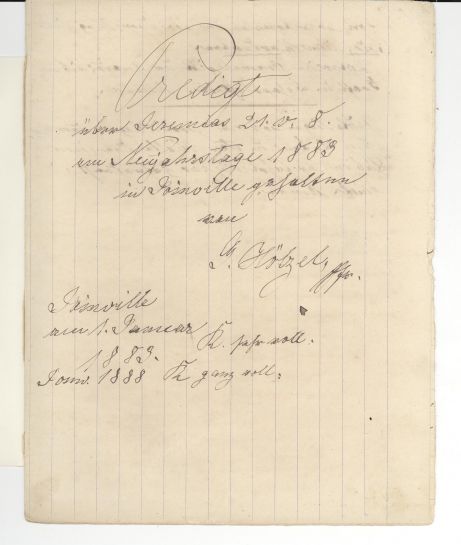 Predigt
über Jeremias 21. v. 8.
am Neujahrstage 1883
in Joinville gehalten
von
Hölzel, Pfr.
Joinville
am 1. Januar K. sehr voll.
1883.
Joinv. 1888 K ganz voll.